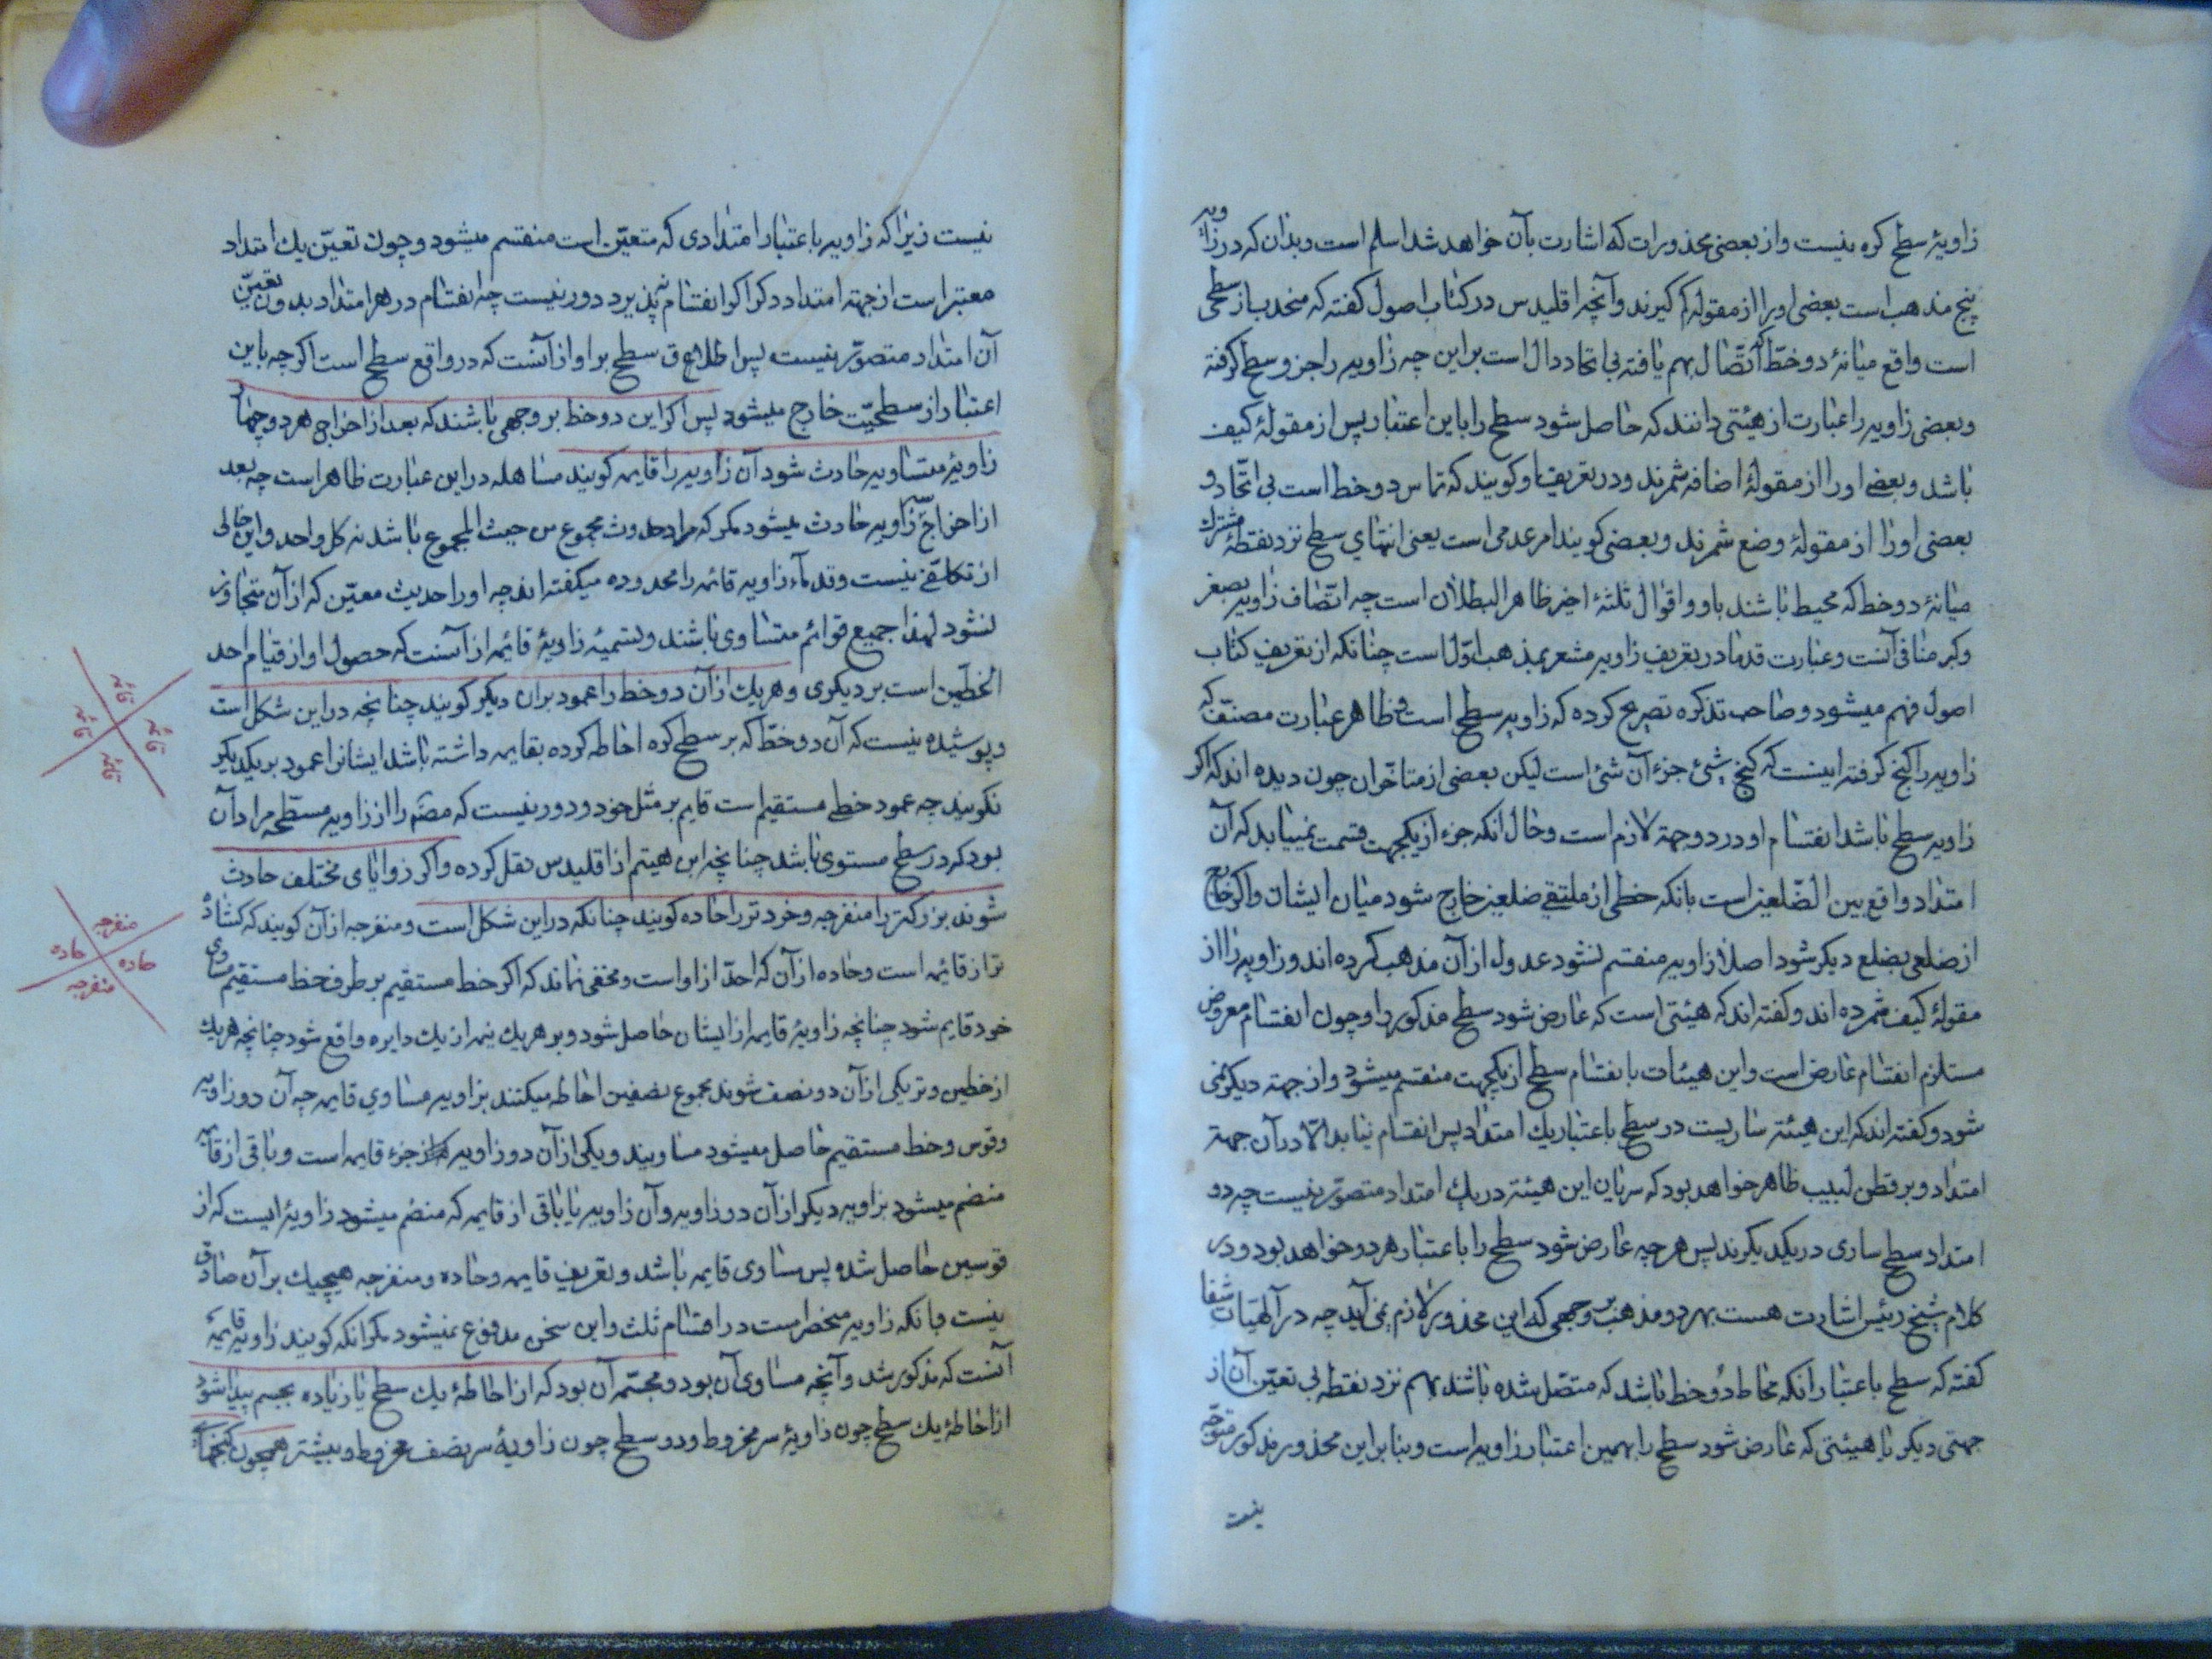 زاویهٔ سطح کره نیست و از بعضی محذورات که اشارت بآن خواهد شد اسلم است و بدان که در زاویه
پنج مذهب است بعضی او را از مقوله کم گیرند و آنچه اقلیدس در کتاب اصول گفته که منحدب از سطحی
است واقع میانهٔ دو خط که اتّصال بهم یافته بی اتحاد دال است براین چه زاویه را جزو سطح گرفته
و بعضی زاویه را عبارت از هیئتی دانند که حاصل شود سطح را باین اعتبار پس از مقولهٔ کیف
باشد و بعضی او را از مقولهٔ اضافه شمرند و در تعریف او گویند که تماس دو خط است بی اتّحاد و
بعضی او را از مقولهٔ وضع شمرند و بعضی گویند امر عدمی است یعنی انتهای سطح نزد نقطهٔ مشترک
میانهٔ دو خط که محیط باشند باو و اقوال ثلثهٔ اخیر ظاهر البطلان است چه اتّصاف زاویه بصغر
و کبر منافی آنست و عبارت قدما در تعریف زاویه مشعر بمذهب اوّل است چنانکه از تعریف کتاب
اصول فهم میشود و صاحب تذکره تصریح کرده که زاویه سطح است و ظاهر عبارت مصنّف که
زاویه را کنج گرفته اینست که کنج شئ جزء آن شئ است لیکن بعضی از متاخّران چون دیده اند که اگر
زاویه سطح باشد انقسام او در دو جهة لازم است و حال آنکه جزء از یکجهت قسمت نمییابد که آن
امتداد واقع بین الضّلعین است بانکه خطی از ملتقی ضلعین خارج شود میان ایشان و اگر خارج
از ضلعی بضلع دیگر شود اصلا زاویه منقسم نشود عدول از آن مذهب کرده اند و زاویه را از
مقولهٔ کیف شمرده اند و گفته اند که هیئتی است که عارض شود سطح مذکور را و چون انقسام معروض
مستلزم انقسام عارض است و این هیئات بانقسام سطح از یکجهت منقسم میشود و از جهة دیگر نمی
شود و گفته اند که این هیئة ساریست در سطح باعتبار یک امتداد پس انقسام نیابد الّا در آن جهة
امتداد و بر فطن لبیب ظاهر خواهد بود که سریان این هیئة در یک امتداد متصوّر نیست چه دو
امتداد سطح ساری در یکدیگرند پس هر چه عارض شود سطح را باعتبار هر دو خواهد بود و در
کلام شیخ رئیس اشارت هست بهر دو مذهب بر وجهی که این محذور لازم نمی آید چه در آلهیات شفا
گفته که سطح باعتبار انکه محاط دو خط باشد که متصّل شده باشند بهم نزد نقطه بی تعیّن آن از
جهتی دیگر یا هیئتی که عارض شود سطح را بهمین اعتبار زاویه است و بنابراین محذور مذکور متوجّه
نیست
نیست زیرا که زاویه باعتبار امتدادی که متعیّن است منقسم میشود و چون تعیّن یک امتداد
معتبر است از جهة امتداد دکر اکر انقسام نپذیرد دور نیست چه انقسام در هر امتداد بدون تعیّن
آن امتداد متصوّر نیست پس اطلاق سطح بر او از آنست که در واقع سطح است اگر چه باین
اعتبار از سطحیّت خارج میشود پس اکر این دو خط بر وجهی باشند که بعد از اخراج هر دو چهار
زاویهٔ متساویه حادث شود آن زاویه را قایمه گویند مساهله در این عبارت ظاهر است چه بعد
از اخراج سه زاویه حادث میشود مگر که مراد حدوث مجموع من حیث المجموع باشد نه کل واحد و این خالی
از تکلّفی نیست و قدماء زاویه قائمه را محدوده میگفته اند چه او را حدیث معیّن که از آن متجاوز
نشود لهذا جمیع قوائم متساوی باشند و تسمیهٔ زاویهٔ قائیمه از آنست که حصول او از قیام احد
الخطّین است بر دیگری و هر یک از آن دو خط را عمود بران دیگر گویند چنانچه در این شکل است
و پوشیده نیست که آن دو خطّ که بر سطح کره احاطه کرده بقایمه داشته باشد ایشانرا عمود بر یکدیگر
نگویند چه عمود خطی مستقیم است قایم بر مثل خود و دور نیست که مصنّف را از زاویه مسطّحه مراد آن
بود که در سطح مستوی باشد چنانچه ابن هیثم از اقلیدس نقل کرده و اگر زوایای مختلف حادث
شوند بزرگتر را منفرجه و خردتر را حاده گویند چنانکه در این شکل است و منفرجه از آن گویند که کشاده
تر از قائمه است و حاده از آن که احدّ از اواست و مخفی نماند که اکر خط مستقیم بر طرف خط مستقیم مساوی
خود قایم شود چنانچه زاویهٔ قایمه از ایشان حاصل شود و بر هر یک نیم از یک دایره واقع شود چنانچه هر یک
از خطین وتر یکی از آن دو نصف شوند مجموع نصفین احاطه میکنند بزاویه مساوی قایمه چه آن دو زاویه
و قوس و خط مستقیم حاصل میشود مساویند و یکی از آن دو زاویه جزء قایمه است و باقی از قایمه
منضم میشود بزاویه دیگر از آن دو زاویه و آن زاویه با باقی از قایمه که منضم میشود زاویهٔ ایست که از
قوسین حاصل شده پس مساوی قایمه باشد و تعریف قایمه و حاده و منفرجه هیچیک بر آن صادق
نیست بانکه زاویه منحصر است در اقسام ثلث و این سخن مدفوع نمیشود مکر انکه گویند زاویه قایمهٔ
آنست که مذکور شد و آنچه مساوی آن بود و مجسّمه آن بود که از احاطهٔ یک سطح یا زیاده بجسم پیدا شود
از احاطهٔ یک سطح چون زاویهٔ سر مخروط و دو سطح چون زاویهٔ سر نصف مخروط و بیشتر همچون کنجهای
قائمه
قائمه
قائمه
قائمه
منفرجه
حاده
حاده
منفرجه